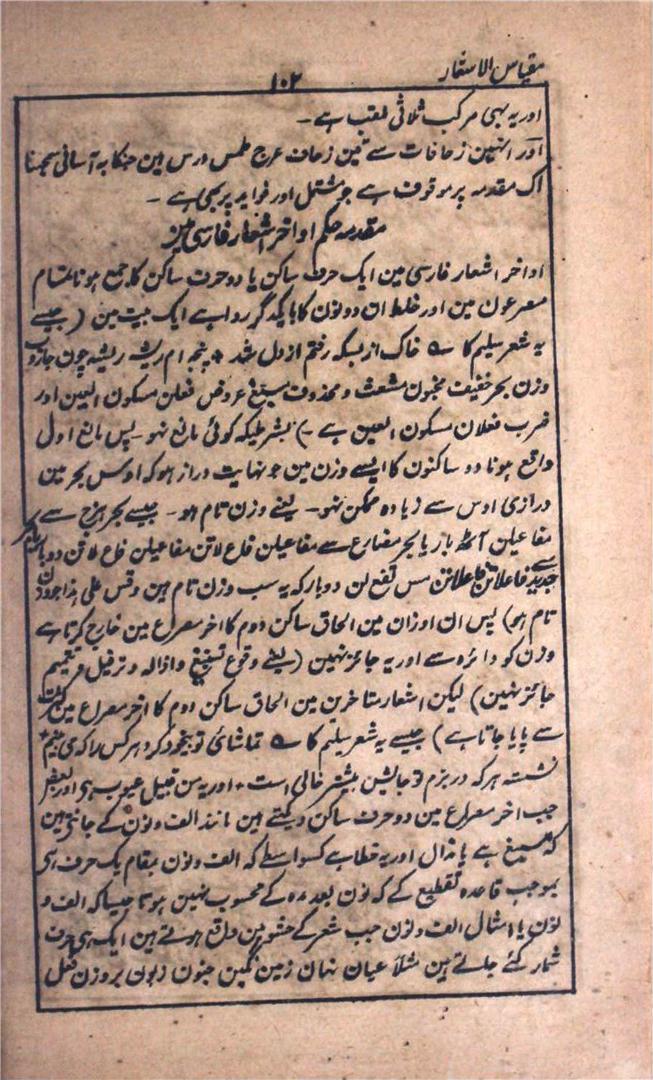 مقیاس الاسفار
۱۰۲
اور یہ بہی مرکب ثلاثی لقب ہے ۔
اور انہین زحافات سے تین زحاف عرج طمس درس ہین جنکا بہ آسانی سمجہنا
اک مقدمہ پر موقوف ہے جو مشتمل اور فواید پر بہی ہے ۔
مقدمہ حکم اواخر اشعار فارسی مین
اواخر اشعار فارسی مین ایک حرف ساکن یا دو حرف ساکن کا جمع ہونا تمام
مصرعون مین اور خلط ان دونون کا بایکدگر روا ہے ایک بیت مین (جیسے
یہ شعر سلیم کا ے خاک از بسکہ رفتم از دل شد + پنجہ ام ریشہ ریشہ چون جاروب
وزن بحر خفیف مخبون مشعث و محذوف مسبغ عروض فعلن مسکون العین اور
ضرب فعلان مسکون العین ہے ۔) بشرطیکہ کوئی مانع نہو ۔ پس مانع اول
واقع ہونا دو ساکنون کا ایسے وزن مین جو نہایت دراز ہو کہ اوس بحر مین
درازی اوس سے زیادہ ممکن نہو ۔ یعنے وزن تام ہو ۔ جیسے بحر ہزج سے
مفاعیلن آٹھ بار یا بحر مضارع سے مفاعیلن فاع لاتن مفاعیلن فاع لاتن دو بار
جدید سے فاعلاتن فاعلاتن مس تفع لن دو بار کہ یہ سب وزن تام ہین وقس علی ہذا جو وزن
تام ہو) پس ان اوزان مین الحاق ساکن دوم کا اخر مصراع مین خارج کرتا ہے
وزن کو دائرہ سے اور یہ جائز نہین (یعنے وقوع تسبیغ و اذالہ و ترفیل و تعمیم
جائز نہین) لیکن اشعار متاخرین مین الحاق ساکن دوم کا اخر مصراع مین کثرت
سے پایا جاتا ہے) جیسے یہ شعر سلیم کا ے تماشائی تو بیخود کرد ہر کس را کہ می بینم +
نشستہ ہر کہ در بزم تو جایش بیشتر خالی است + اور یہ من قبیل عیوب ہی اور بعض
جب اخر مصراع مین دو حرف ساکن دیکہتے ہین مانند الف و نون کے جانتے ہین
کہ مسبغ ہے یا مذال اور یہ خطا ہے کسواسطے کہ الف و نون بمقام یک حرف ہی
بموجب قاعدہ تقطیع کے کہ نون بعد مدہ کے محسوب نہین ہوتا جیسا کہ الف و
نون یا امثال الف و نون جب شعر کے حشو مین واقع ہوتے ہین ایک ہی حرف
شمار کئے جاتے ہین مثلاً عیان نہان زمین نگین جنون زبون بروزن فعل